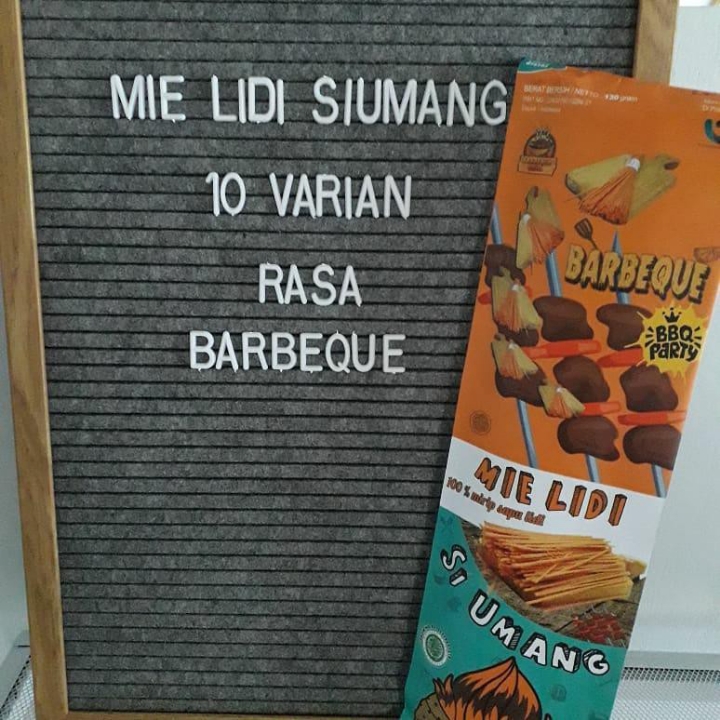 MIE LIDI SIUMANG
10 VARIAN
RASA
BARBEQUE
BERAT BERSIH / NET
120 gram
BARBEQUE
BBQ
PARTY
MIE LIDI
100 % mirip sapu lidi
SI UMANG